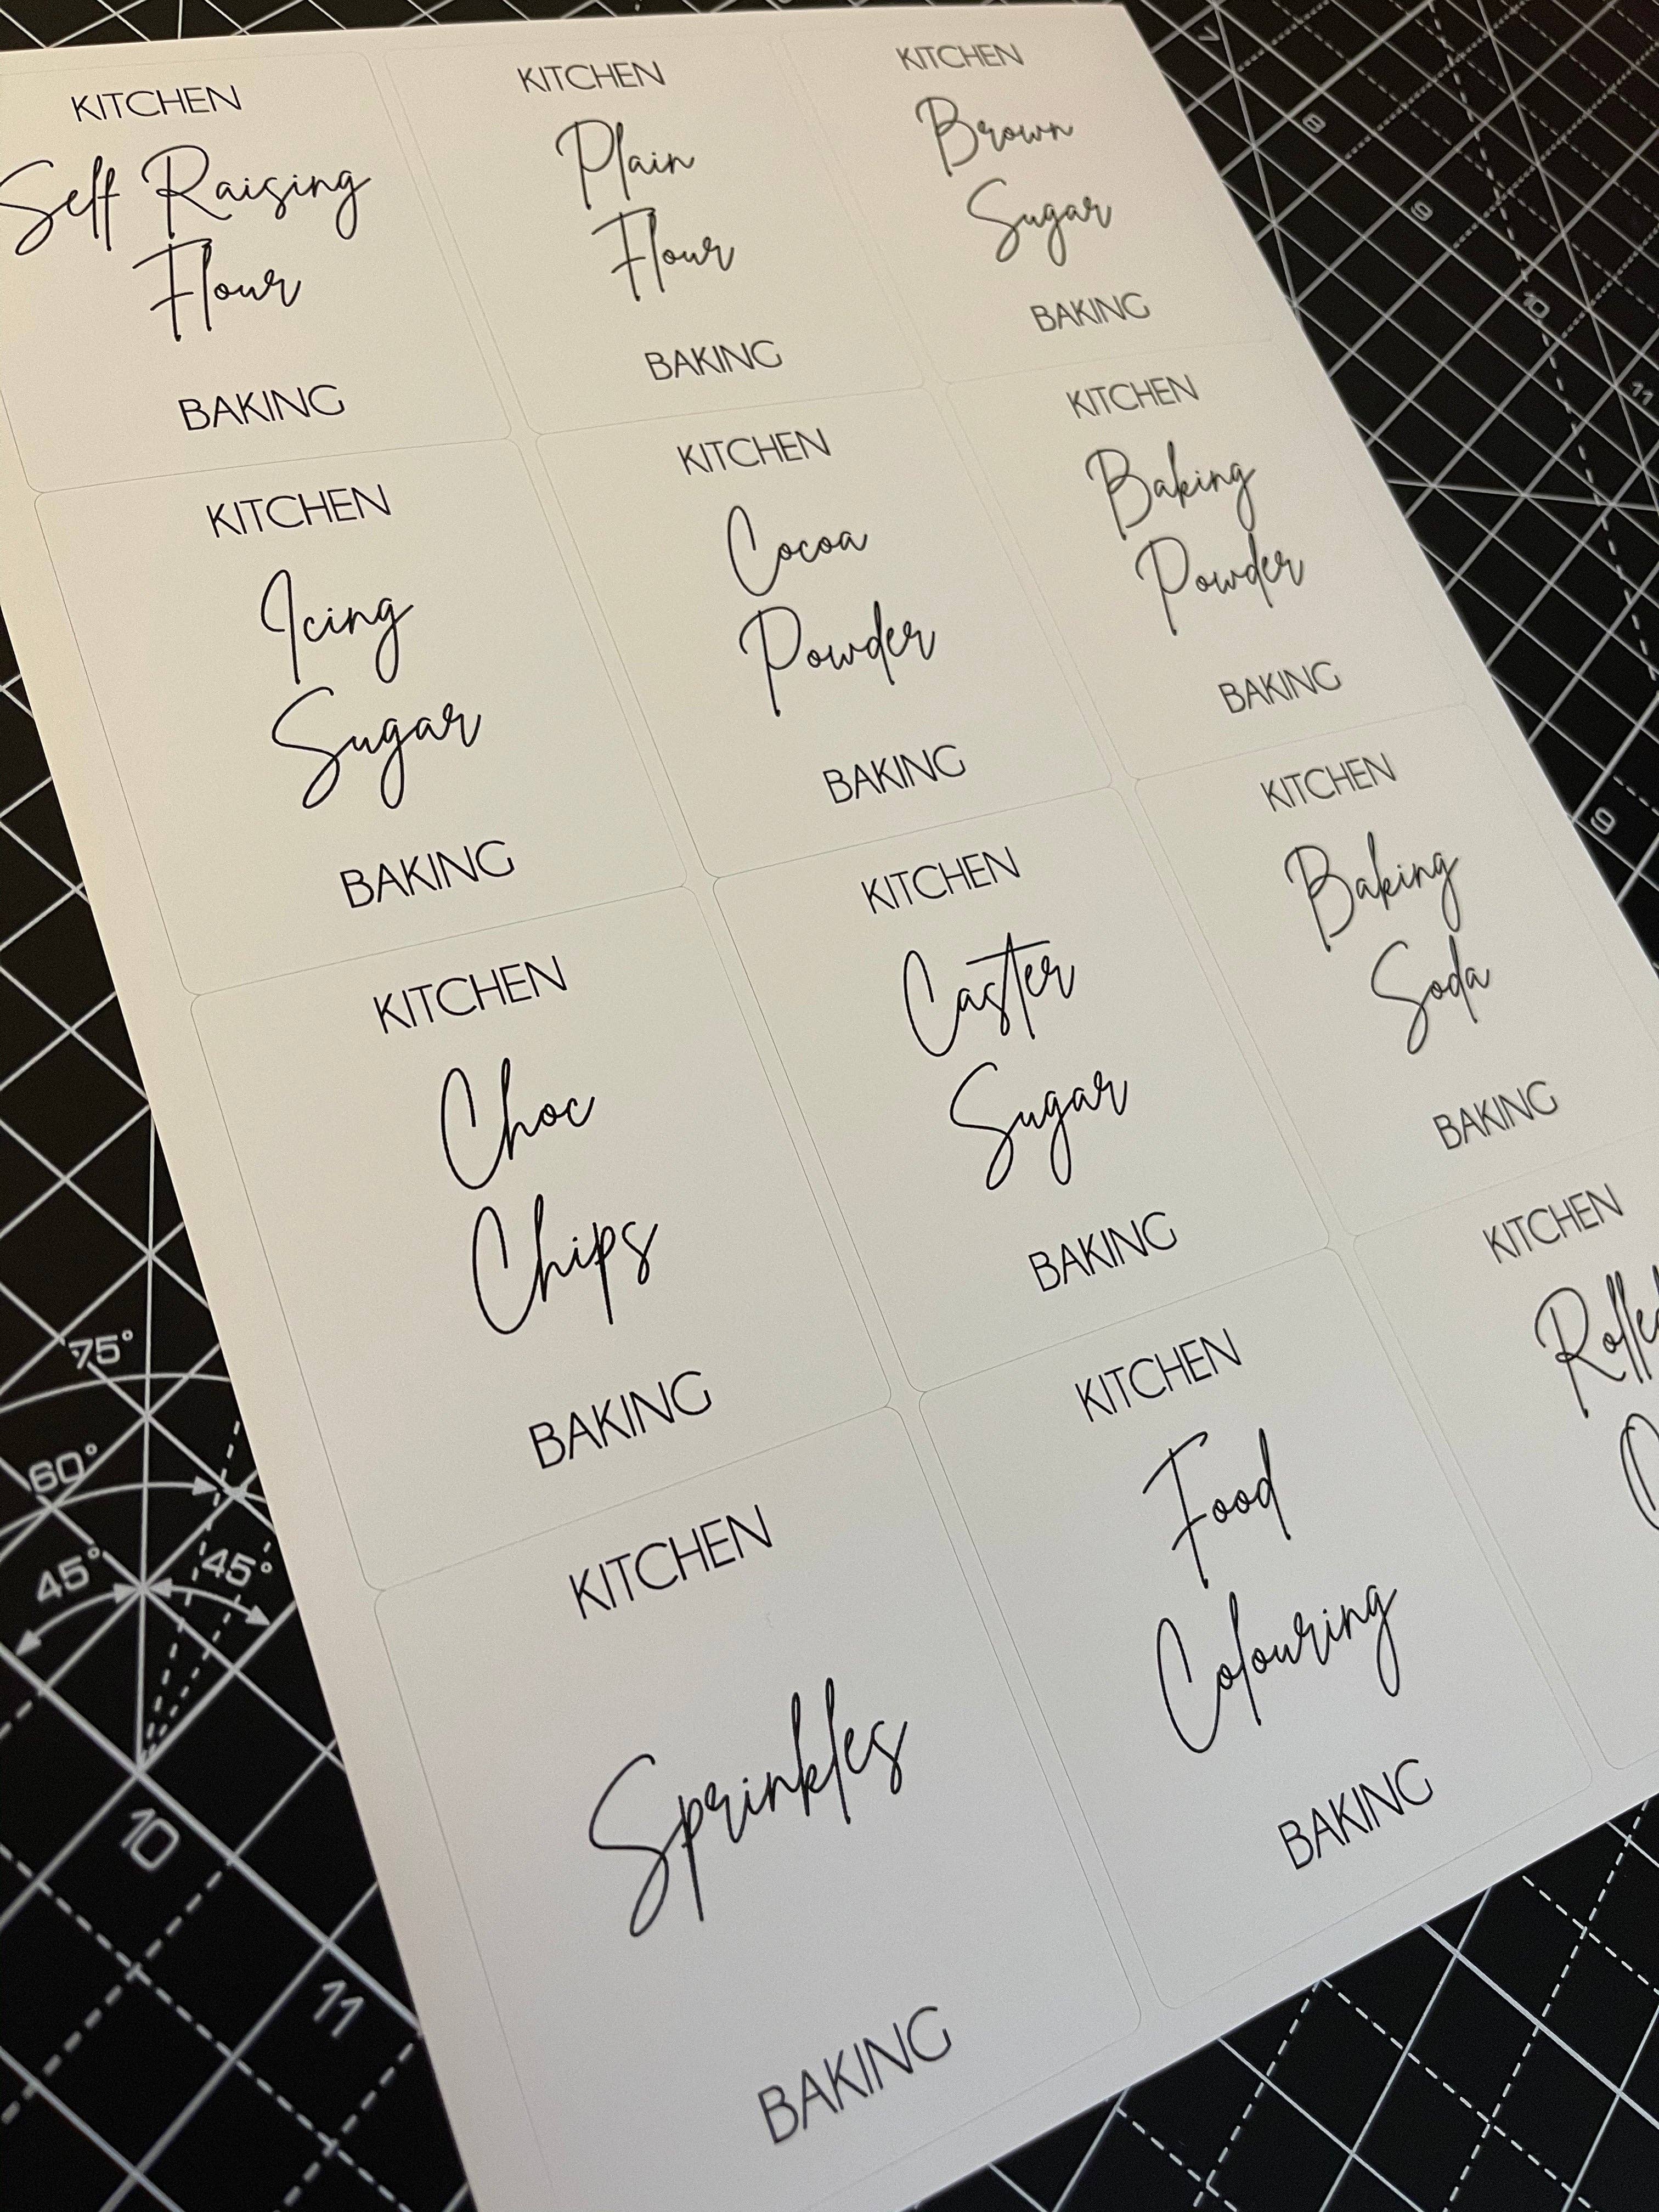 KITCHEN
Self Raising
Flour
BAKING
KITCHEN
Plain
Flour
BAKING
KITCHEN
Brown
Sugar
BAKING
KITCHEN
Icing
Sugar
BAKING
KITCHEN
Cocoa
Powder
BAKING
KITCHEN
Baking
Powder
BAKING
KITCHEN
Choc
Chips
BAKING
KITCHEN
Caster
Sugar
BAKING
KITCHEN
Baking
Soda
BAKING
KITCHEN
Sprinkles
BAKING
KITCHEN
Food
Colouring
BAKING
KITCHEN
Rolled
7
8
9
10
11
9
75°
60°
45°
45°
10
11